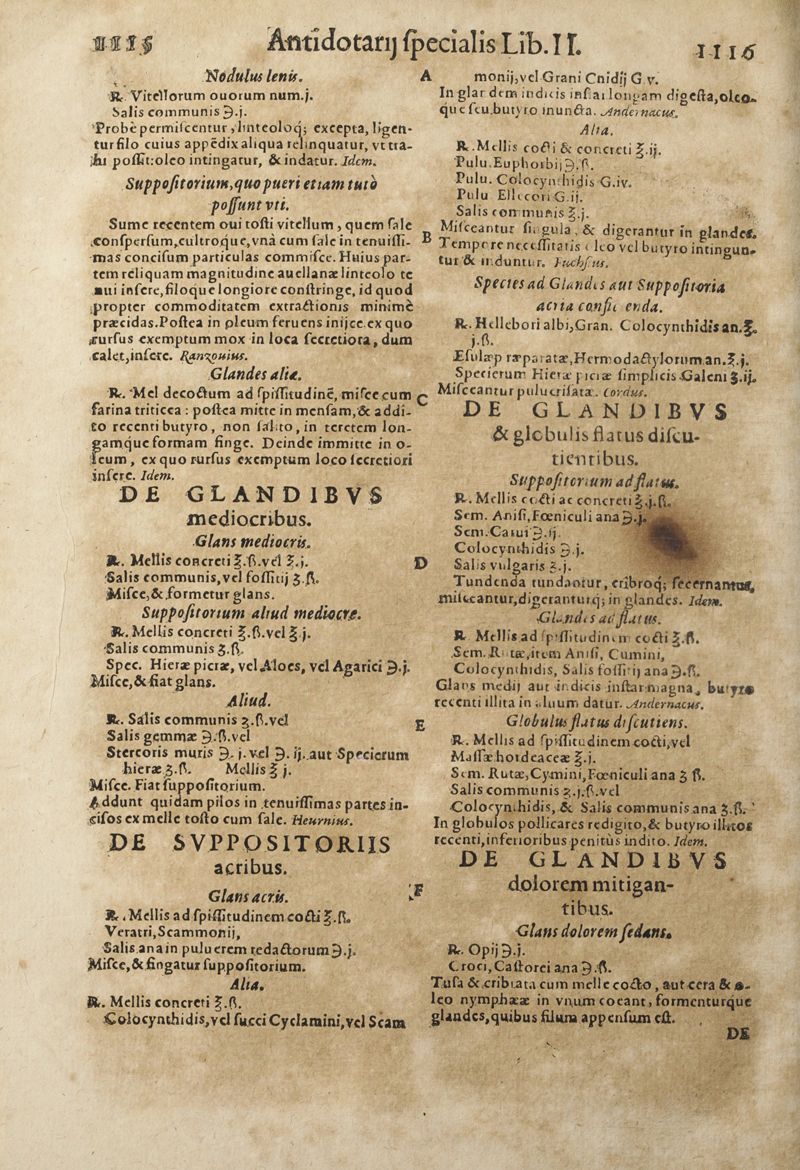 1115 Antidotarij ſpecialis Lib. II. 1116
Nodulus lenis.
℞. Vitellorum ouorum num.j.
Salis communis ℈.j.
Probè permiſcentur, linteoloq; excepta, ligen-
tur filo cuius appēdix aliqua relinquatur, vt tra-
hi poſſit: oleo intingatur, & indatur. Idem.
Suppoſitorium, quo pueri etiam tutò
poſſunt vti.
Sume recentem oui toſti vitellum, quem ſale
conſperſum, cultroque, vnà cum ſale in tenuiſſi-
mas conciſum particulas commiſce. Huius par-
tem reliquam magnitudine auellanæ linteolo te
nui inſere, filoque longiore conſtringe, id quod
propter commoditatem extractionis minimè
præcidas. Poſtea in oleum feruens inijce ex quo
rurſus exemptum mox in loca ſecretiora, dum
calet, inſere. Ranzouius.
Glandes aliæ.
℞. Mel decoctum ad ſpiſſitudinē, miſce cum
farina triticea: poſtea mitte in menſam, & addi-
to recenti butyro, non ſalito, in teretem lon-
gamque formam finge. Deinde immitte in o-
leum, ex quo rurſus exemptum loco ſecretiori
inſere. Idem.
DE GLANDIBVS
mediocribus.
Glans mediocris.
℞. Mellis concreti ℥.ß. vel ℥.j.
Salis communis, vel foſſitij ʒ.ß.
Miſce, & formetur glans.
Suppoſitorium aliud mediocre.
℞. Mellis concreti ℥.ß. vel ℥ j.
Salis communis ʒ.ß.
Spec. Hieræ picræ, vel Aloes, vel Agarici ℈.j.
Miſce, & fiat glans.
Aliud.
℞. Salis communis ʒ.ß. vel
Salis gemmæ ℈.ß. vel
Stercoris muris ℈. j. vel ℈. ij. aut Specierum
hieræ ʒ.ß. Mellis ℥ j.
Miſce. Fiat ſuppoſitorium.
Addunt quidam pilos in tenuiſſimas partes in-
ciſos ex melle toſto cum ſale. Heurnius.
DE SVPPOSITORIIS
acribus.
Glans acris.
℞. Mellis ad ſpiſſitudinem cocti ℥.ß.
Veratri, Scammonij,
Salis ana in puluerem redactorum ℈.j.
Miſce, & fingatur ſuppoſitorium.
Alia.
℞. Mellis concreti ℥.ß.
Colocynthidis, vel ſucci Cyclamini, vel Scam
A monij, vel Grani Cnidij G.v.
In glandem indicis inſtar longam digeſta, oleo-
que ſeu butyro inuncta. Andernacus.
Alia.
℞. Mellis cocti & concreti ℥.ij.
Pulu. Euphorbij ℈.ß.
Pulu. Colocynthidis G.iv.
Pulu Ellebori G.ij.
Salis communis ℥.j.
Miſceantur ſingula, & digerantur in glandes.
B Tempore neceſſitatis oleo vel butyro intingun-
tur & induntur. Fuchſius.
Species ad Glandes aut Suppoſitoria
acria conficienda.
℞. Hellebori albi, Gran. Colocynthidis an. ℥.
j.ß.
Eſulæ præparatæ, Hermodactylorum an. ℥.j.
Specierum Hieræ picræ ſimplicis Galeni ʒ.ij.
C Miſceantur pulueriſatæ. Cordus.
DE GLANDIBVS
& globulis flatus diſcu-
tientibus.
Suppoſitorium ad flatus.
℞. Mellis cocti ac concreti ℥.j.ß.
Sem. Aniſi, Fœniculi ana ℈.j.
Sem. Carui ℈.ij.
Colocynthidis ℈.j.
D Salis vulgaris ʒ.j.
Tundenda tundantur, cribroq; ſecernantur,
miſceantur, digerantur q; in glandes. Idem.
Glandes ad flatus.
℞ Mellis ad ſpiſſitudinem cocti ℥.ß.
Sem. Rutæ, item Aniſi, Cumini,
Colocynthidis, Salis foſſitij ana ℈.ß.
Glans medij aut indicis inſtar magna, butyro
recenti illita in aluum datur. Andernacus.
E Globulus flatus diſcutiens.
℞. Mellis ad ſpiſſitudinem cocti, vel
Maſſæ hordeaceæ ℥.j.
Sem. Rutæ, Cymini, Fœniculi ana ʒ ß.
Salis communis ʒ.j.ß. vel
Colocynthidis, & Salis communis ana ʒ.ß.
In globulos pollicares redigito, & butyro illitos
recenti, inferioribus penitùs indito. Idem.
DE GLANDIBVS
F dolorem mitigan-
tibus.
Glans dolorem ſedans.
℞. Opij ℈.j.
Croci, Caſtorei ana ℈.ß.
Tuſa & cribrata cum melle cocto, aut cera & o-
leo nymphææ in vnum coeant, formenturque
glandes, quibus filum appenſum eſt.
DE